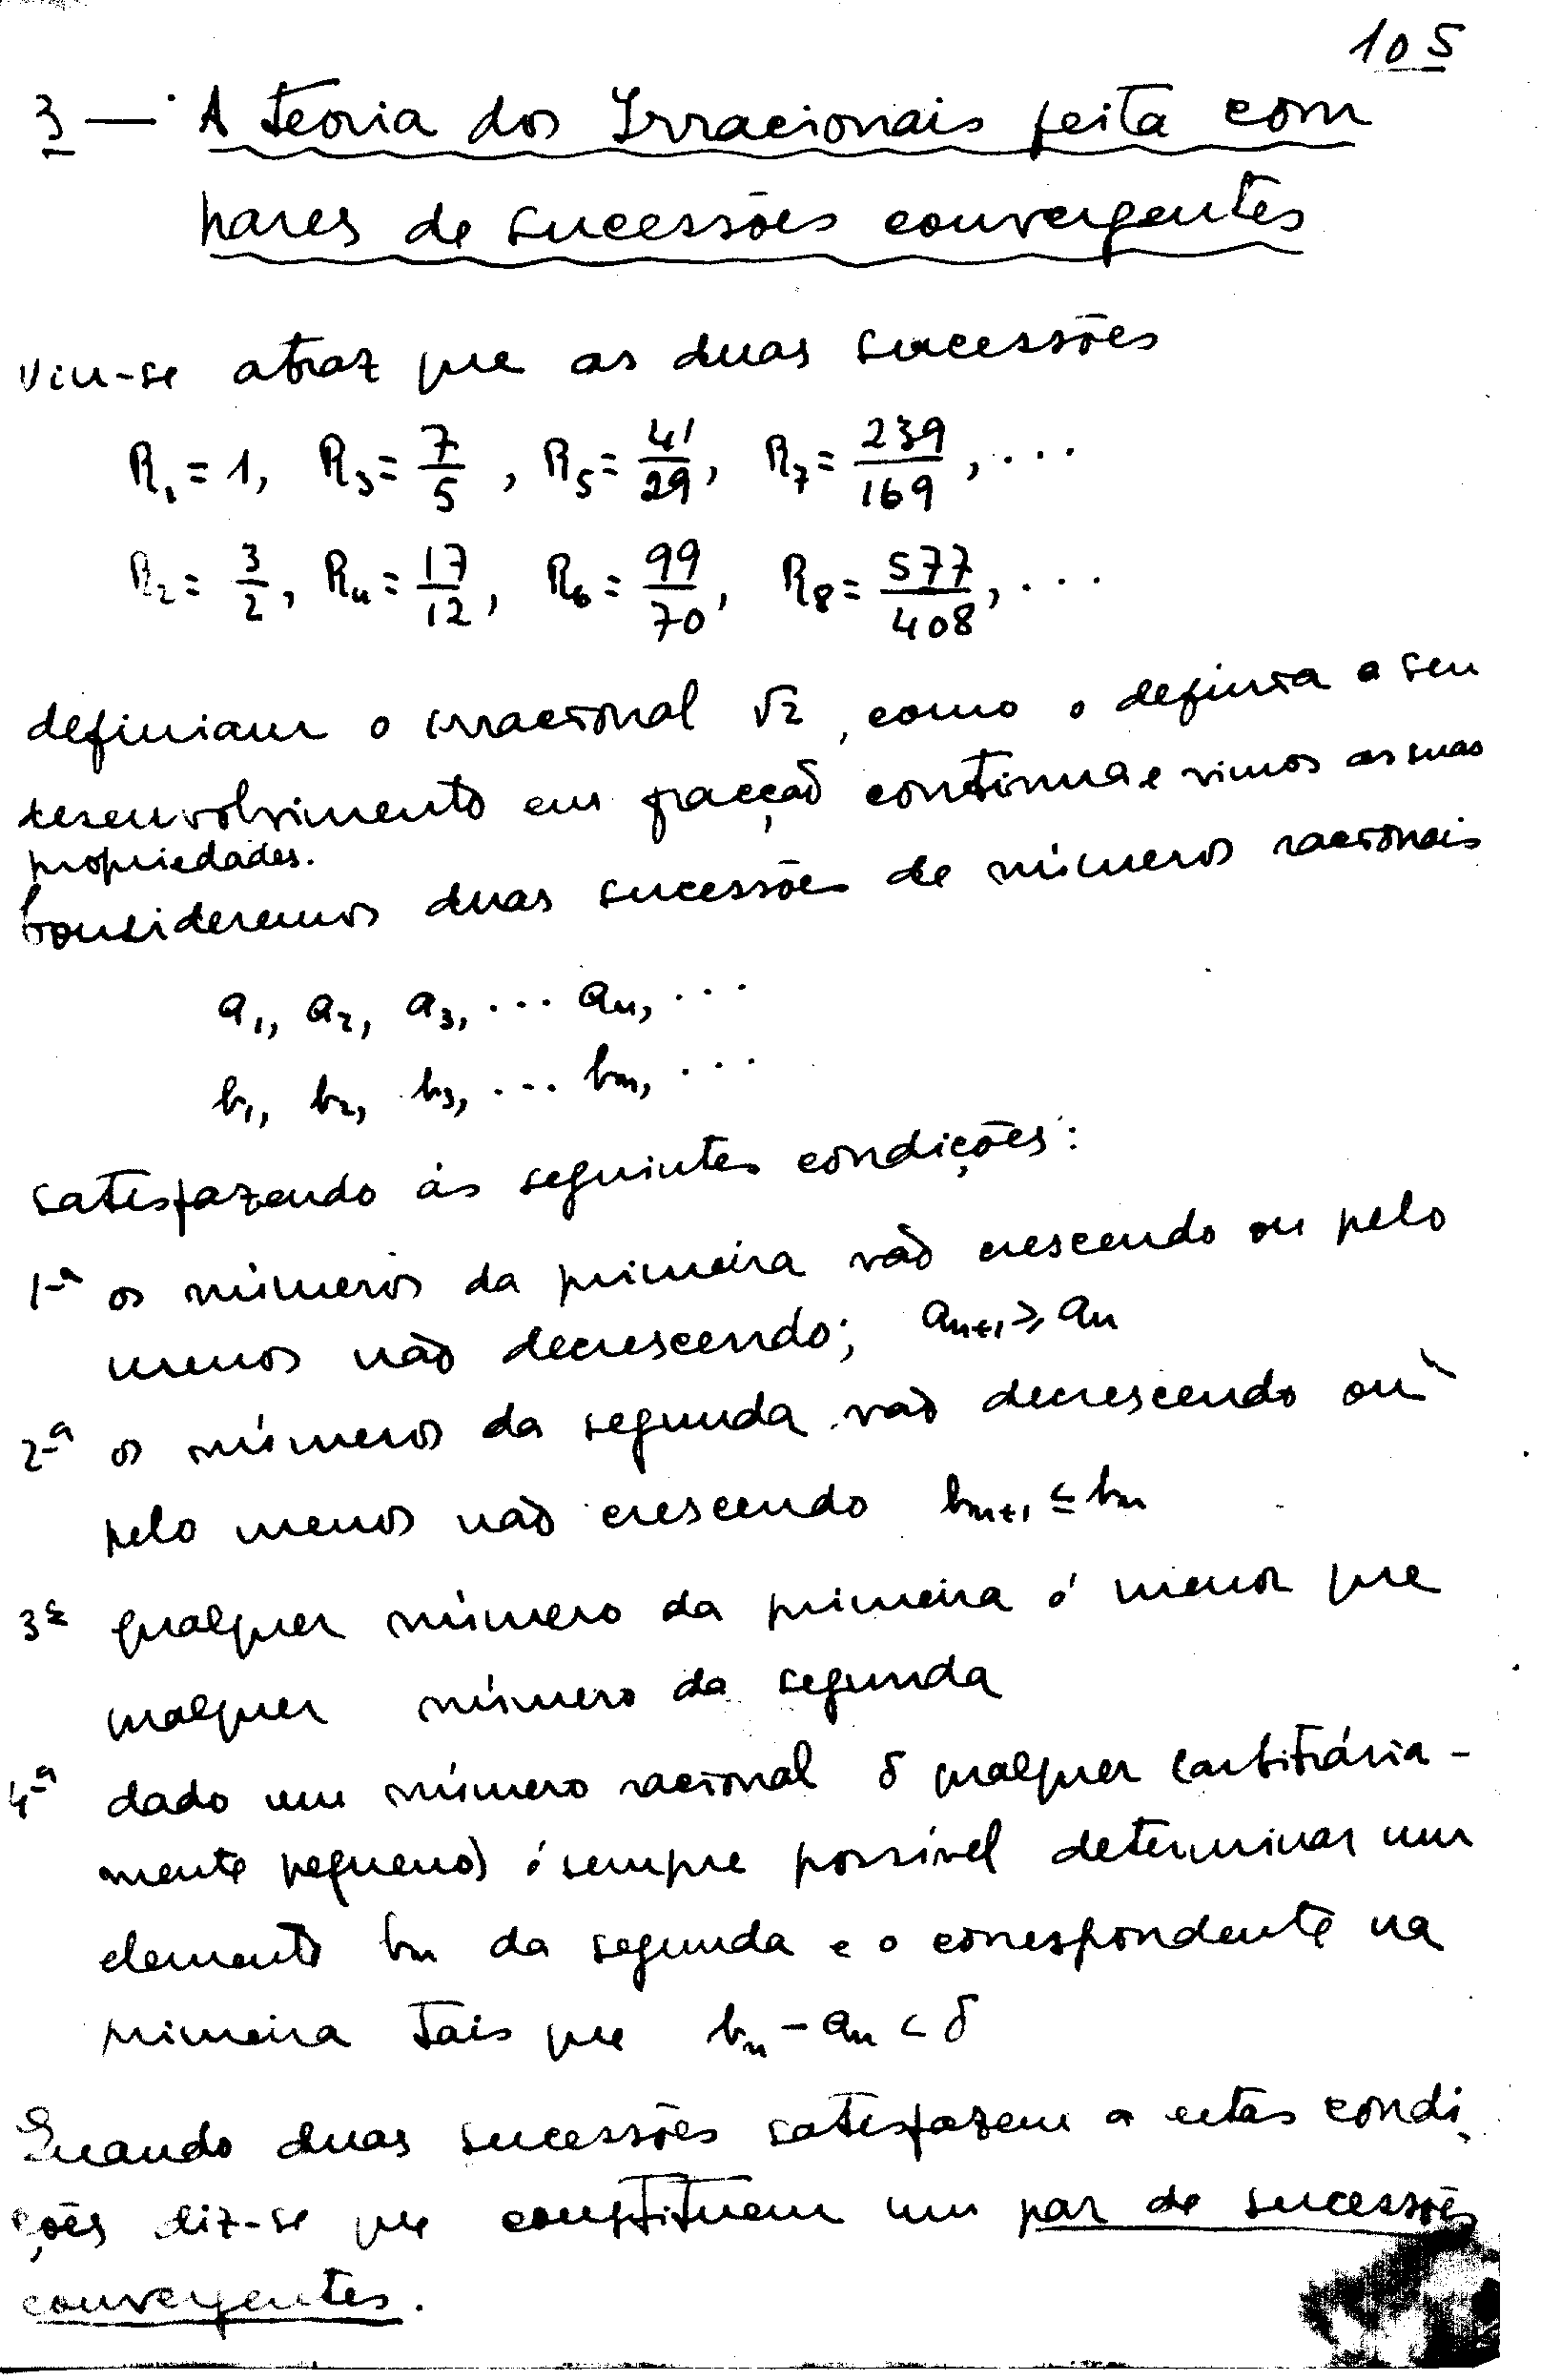 105
3 — A teoria dos Irracionais feita com
pares de sucessões convergentes
Viu-se atraz que as duas sucessões
R₁ = 1, R₃ = 7/5, R₅ = 41/29, R₇ = 239/169, ...
R₂ = 3/2, R₄ = 17/12, R₆ = 99/70, R₈ = 577/408, ...
definiam o irracional √2, como o definia o seu
desenvolvimento em fracção contínua e vimos as suas
propriedades.
Consideremos duas sucessões de números racionais
a₁, a₂, a₃, ... aₙ, ...
b₁, b₂, b₃, ... bₙ, ...
satisfazendo ás seguintes condições:
1-ª os números da primeira vão crescendo ou pelo
menos não decrescendo; aₙ₊₁ ⩾ aₙ
2-ª os números da segunda vão decrescendo ou
pelo menos não crescendo bₙ₊₁ ≤ bₙ
3ª qualquer número da primeira é menor que
qualquer número da segunda
4-ª dado um número racional δ qualquer (arbitrária-
mente pequeno) é sempre possível determinar um
elemento bₙ da segunda e o correspondente na
primeira tais que bₙ - aₙ < δ
Quando duas sucessões satisfazem a estas condi-
ções diz-se que constituem um par de sucessões
convergentes.